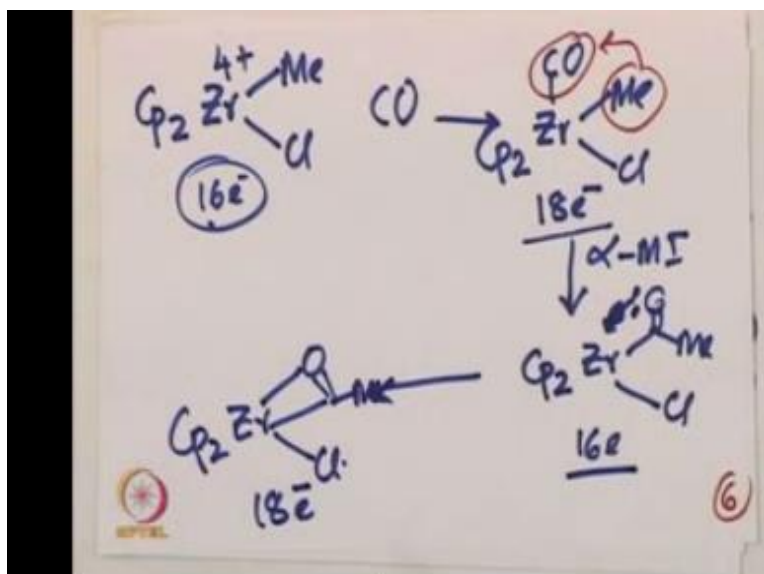 4+
Cp2 Zr Me Cl
16e-
CO
CO
Cp2 Zr Me Cl
18e-
α-MI
O
Cp2 Zr Me Cl
16e
O
Cp2 Zr Me Cl
18e-
6
NPTEL